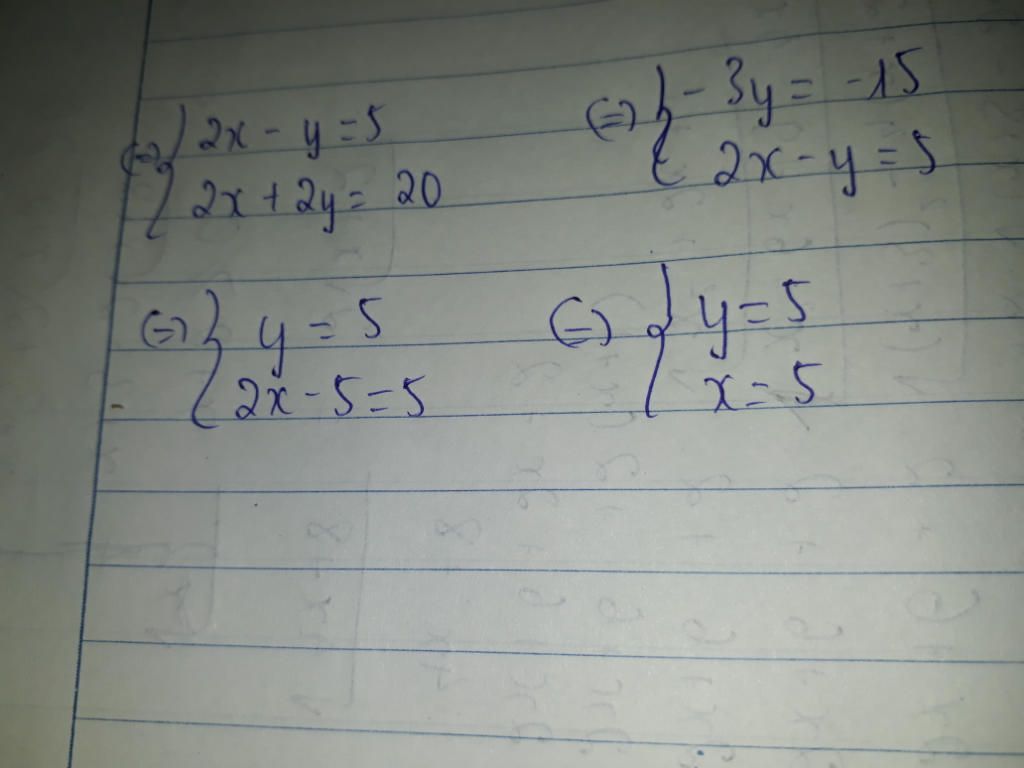 (=) { 2x - y = 5
2x + 2y = 20
(=) { - 3y = -15
2x - y = 5
(=) { y = 5
2x - 5 = 5
(=) { y = 5
x = 5